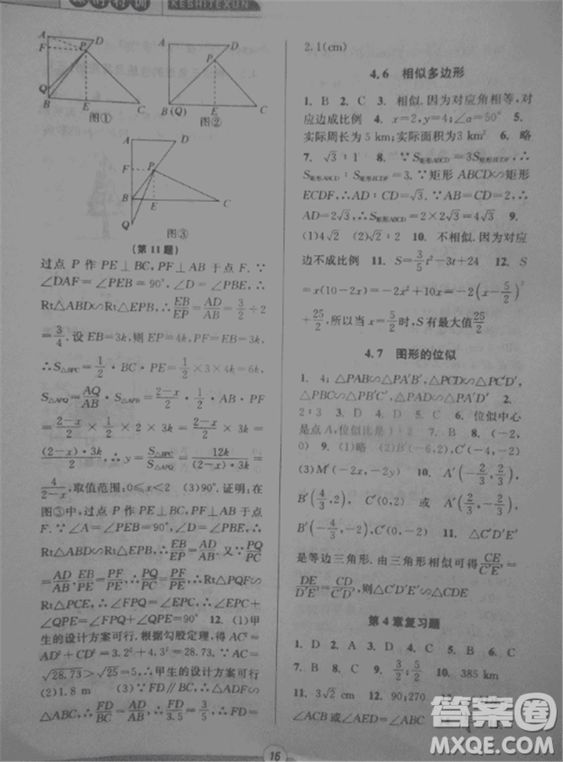 课时特训 KESHITEXUN
A D F P Q B E C
图①
A D P B(Q) E C
图②
A D F P B E C Q
图③
(第11题)
过点 P 作 PE⊥BC,PF⊥AB 于点 F.∵
∠DAF=∠PEB=90°,∴∠D=∠PBE,∴
Rt△ABD∽Rt△EPB,∴EB/EP=AD/AB=3/2÷2
=3/4.设 EB=3k,则 EP=4k,PF=EB=3k,
∴S△BPC=1/2·BC·PE=1/2×3×4k=6k.∵
S△APQ=AQ/AB=(2-x)/2,∴S△APQ=(2-x)/2·1/2×
2×PF=(2-x)/2·1/2×2·3k=(2-x)/2·3k=
(2-x)·3k/2,∴y=S△BPC/S△APQ=12k/((2-x)·3k)=
4/(2-x),取值范围,0≤x<2 (3)90°.证明:在
图③中,过点 P 作 PE⊥BC,PF⊥AB 于点
F.∵∠A=∠PEB=90°,∠D=∠PBE,∴
Rt△ABD∽Rt△EPB,∴EB/EP=AD/AB.又∵PQ/PC
=AD/AB=EB/PE=PF/PE,∴PQ/PC=PF/PE,∴Rt△PQF∽
Rt△PCE,∴∠FPQ=∠EPC,∴∠EPC+
∠QPE=∠FPQ+∠QPE=90° 12. (1)甲
生的设计方案可行.根据勾股定理,得 AC²=
AD²+CD²=3.2²+4.3²=28.73.∴AC=
√28.73>√25=5.∴甲生的设计方案可行
(2)1.8 m (3)∵FD∥BC,∴△ADF∽
△ABC,∴FD/BC=AD/AB,∴FD/3.5=5/5,∴FD=
2.1(cm)
4.6 相似多边形
1. B 2. C 3. 相似.因为对应角相等,对
应边成比例 4. x=2,y=4;∠α=50° 5.
实际周长为 5 km;实际面积为 3 km² 6. 略
7. √3∶1 8. ∵S矩形ABCD=3S矩形ECDF,∴
S矩形ABCD∶S矩形ECDF=3.∵矩形 ABCD∽矩形
ECDF,∴AD∶CD=√3∶1.∵AB=CD=2,
∴AD=2√3,∴S矩形ABCD=2×2√3=4√3 9.
(1)4√2 (2)√2∶1 10. 不相似.因为对应
边不成比例 11. B 12. S=3/5t²-3t+24 13. S
=x(10-2x)=-2x²+10x=-2(x-5/2)²+
25/2,∴当 x=5/2时,S 有最大值25/2
4.7 图形的位似
1. 4;△PAB∽△PA′B′,△PCD∽△PC′D′,
△PBC∽△PB′C′,△PAD∽△PA′D′ 2.
2∶3 3. D 4. B 5. C 6. A,位似中心
是点 A,位似比是1∶2 7. B 8. (0,-1)
9. (1)略 (2)B′(-6,2),C′(-4,-2)
(3)M′(-2x,-2y) 10. A′(-2/3,2/3),
B′(4/3,2),C′(0,2) 或 A′(2/3,-2/3),
B′(-4/3,-2),C′(0,-2) 11. ∵△C′D′E′
是等边三角形.由三角形相似可得CE/C′E′
=DE/D′E′=CD/C′D′,则∠C′D′E′=∠CDE=60°
第4章复习题
1. D 2. A 3. D 4. C 5. C 6. C
7. B 8. C 9. 3/2;5/2 10. 385 km
11. 3√2 cm 12. 90;270
∠ACB 或∠ADC=∠ACB 或
16
答案圈
MXQE.COM